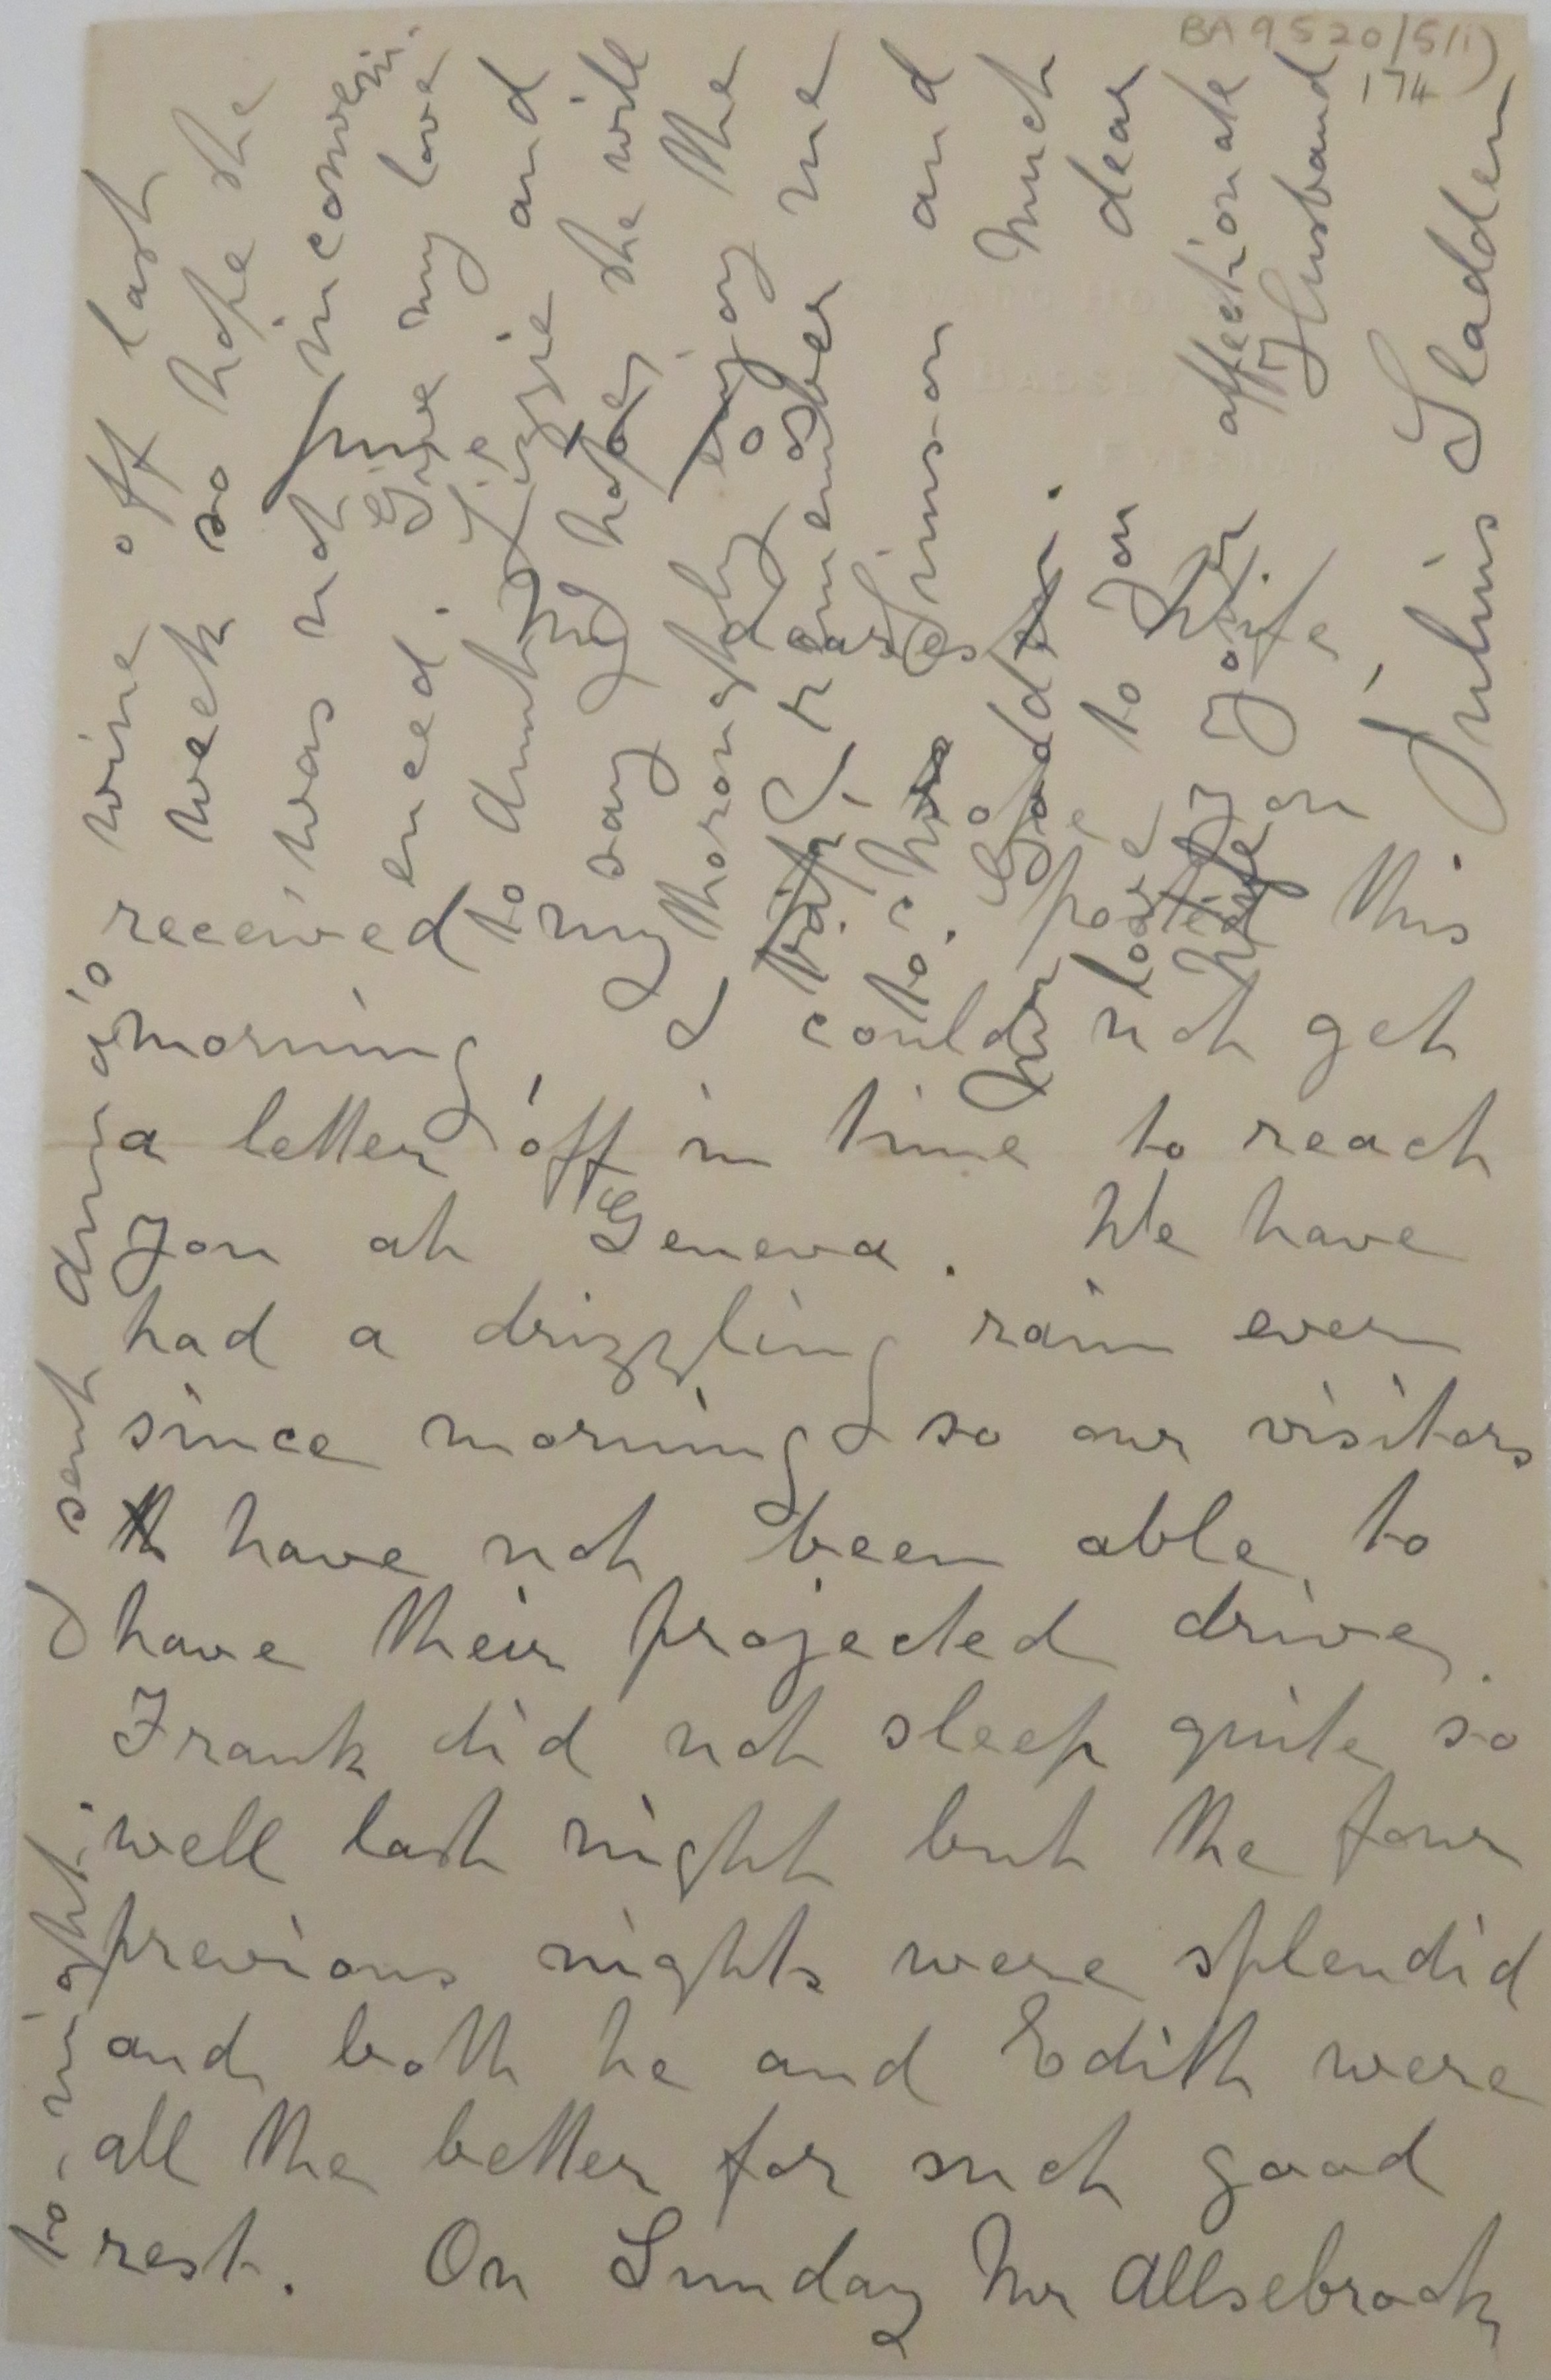 BA 9520/5(i)
174
received my posted this
morning, I could not get
a letter off in time to reach
you at Geneva. We have
had a drizzling rain ever
since morning & so our visitors
have not been able to
have their projected drive.
Frank did not sleep quite so
well last night but the four
previous nights were splendid
and both he and Edith were
all the better for such good
rest. On Sunday Mr Allsebrook
to-night.
I sent wine off last
week so hope she
was not inconveni-
enced. Give my love
to Aunt Lizzie and
say I hope she will
thoroughly enjoy the
trip. remember me
to and
Much
love to you dear
Wife your affectionate
Husband
Julius Sladden